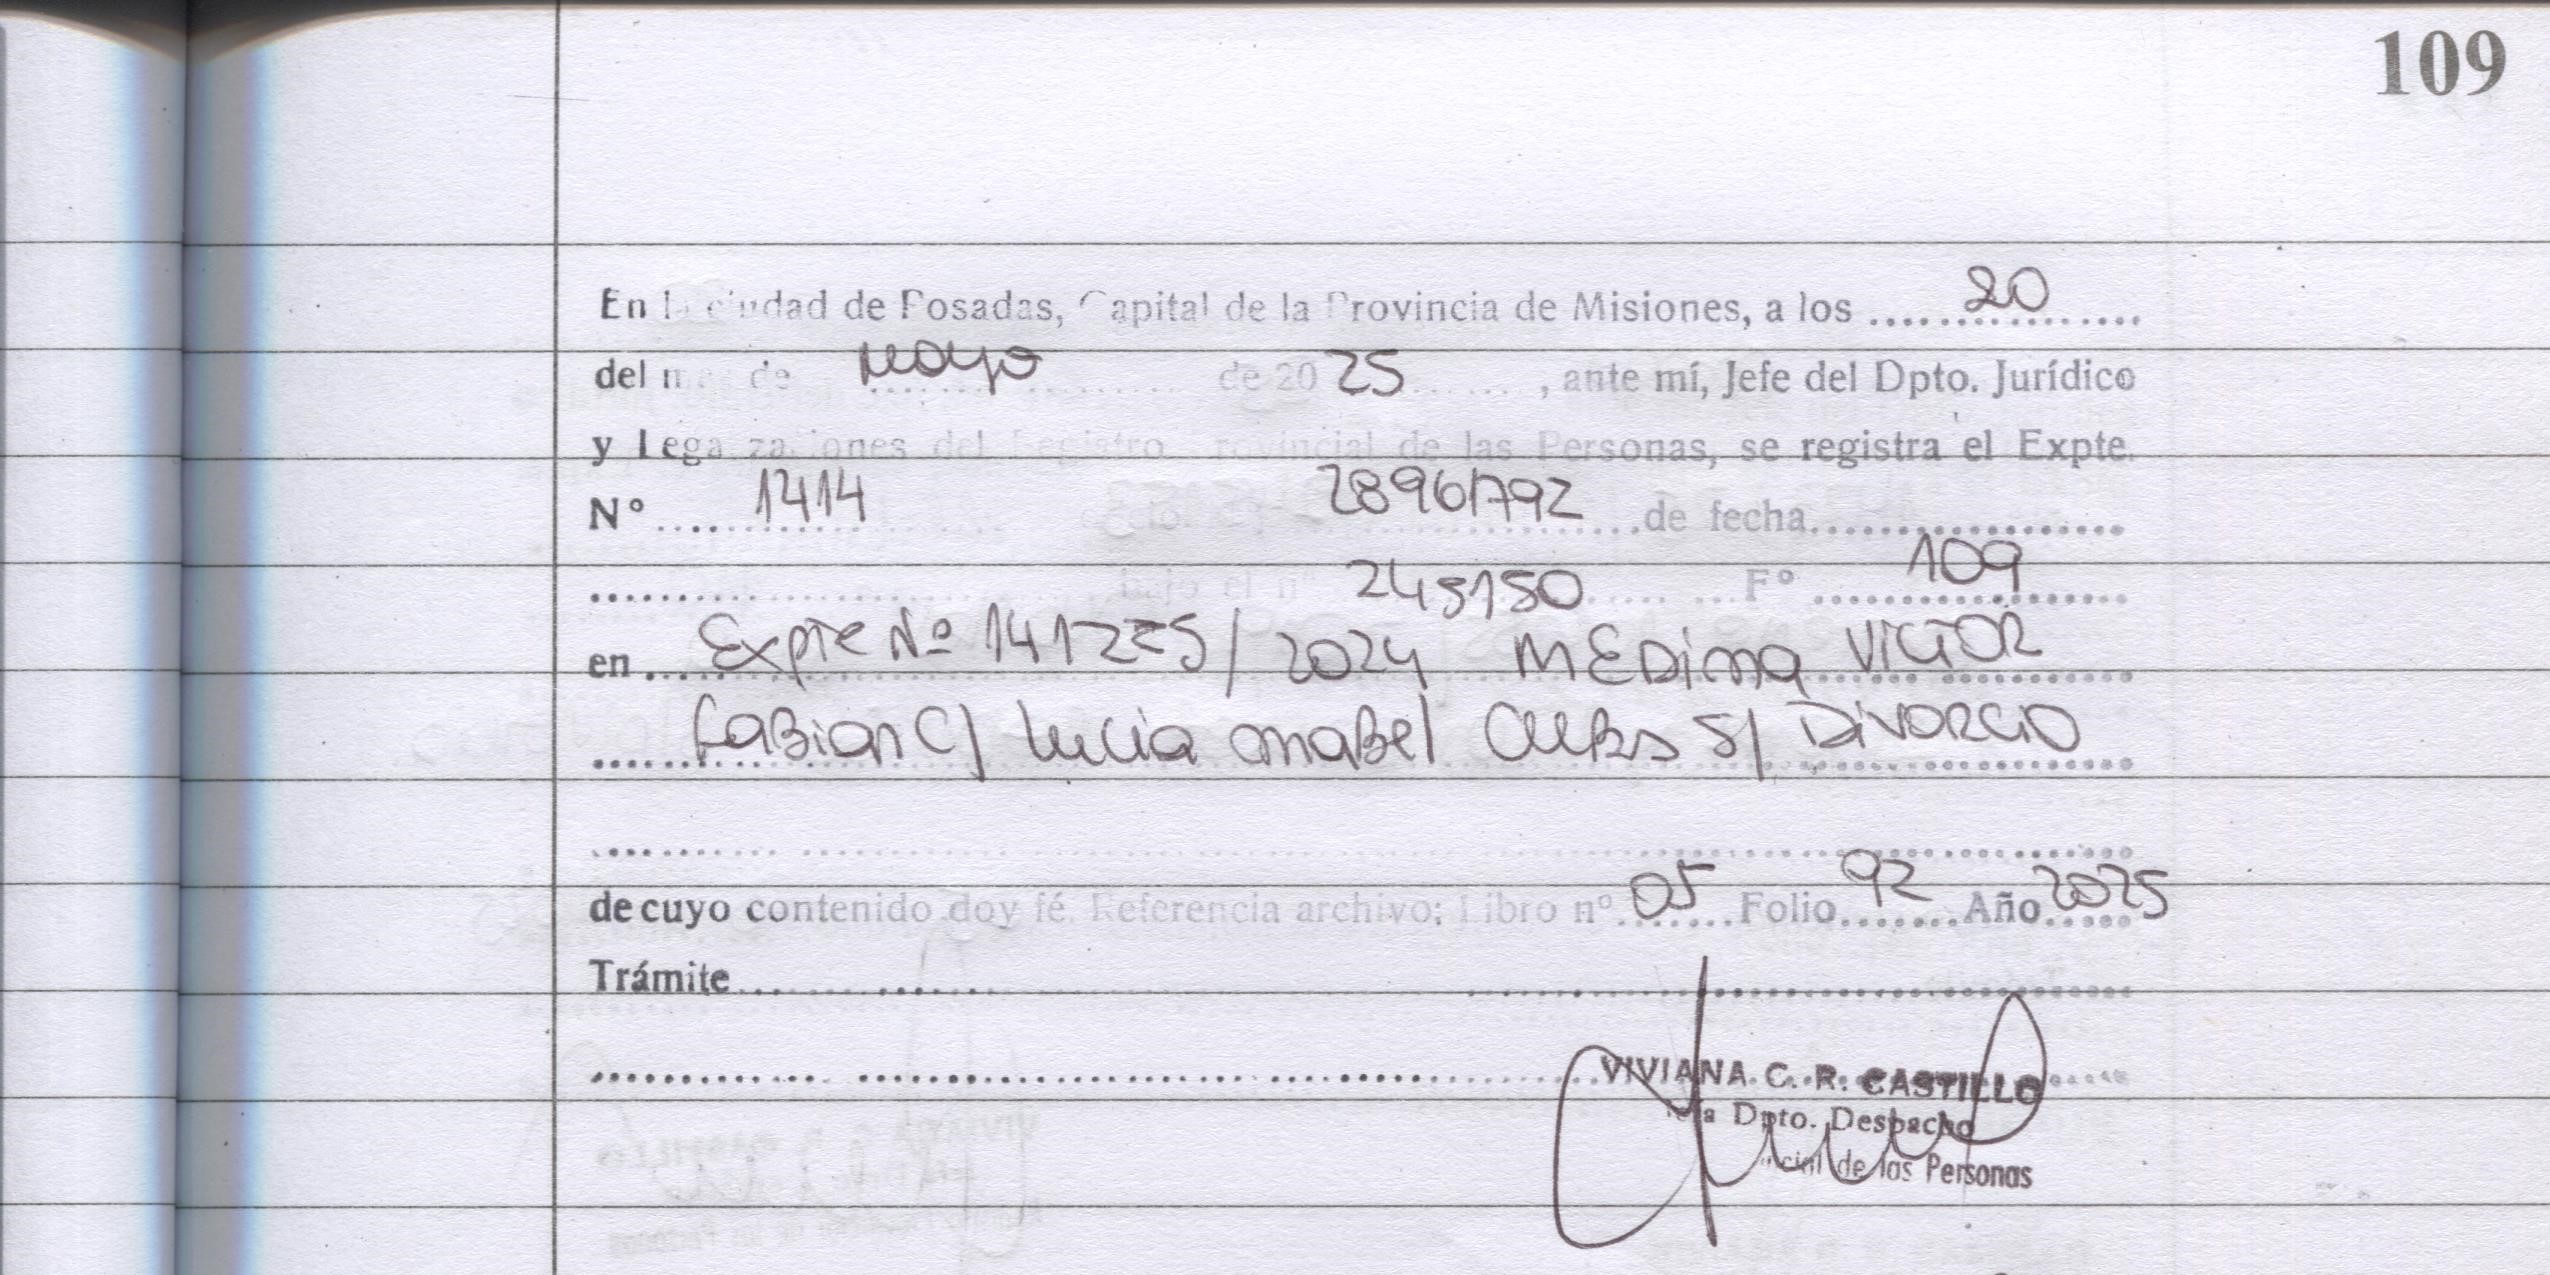 109
En la ciudad de Posadas, Capital de la Provincia de Misiones, a los 20
del mes de mayo de 20 25, ante mí, Jefe del Dpto. Jurídico
y Legalizaciones del Registro Provincial de las Personas, se registra el Expte.
N° 1414 28961792 de fecha
bajo el n° 245150 F° 109
en Expte Nº 141225/2024 MEDina VICTOR
FaBian C/ Lucia maBel S/ DiVORCIO
de cuyo contenido doy fé. Referencia archivo: Libro n° 05 Folio 92 Año 2025
Trámite
VIVIANA C. R. CASTILLO
Dpto. Despacho
de las Personas